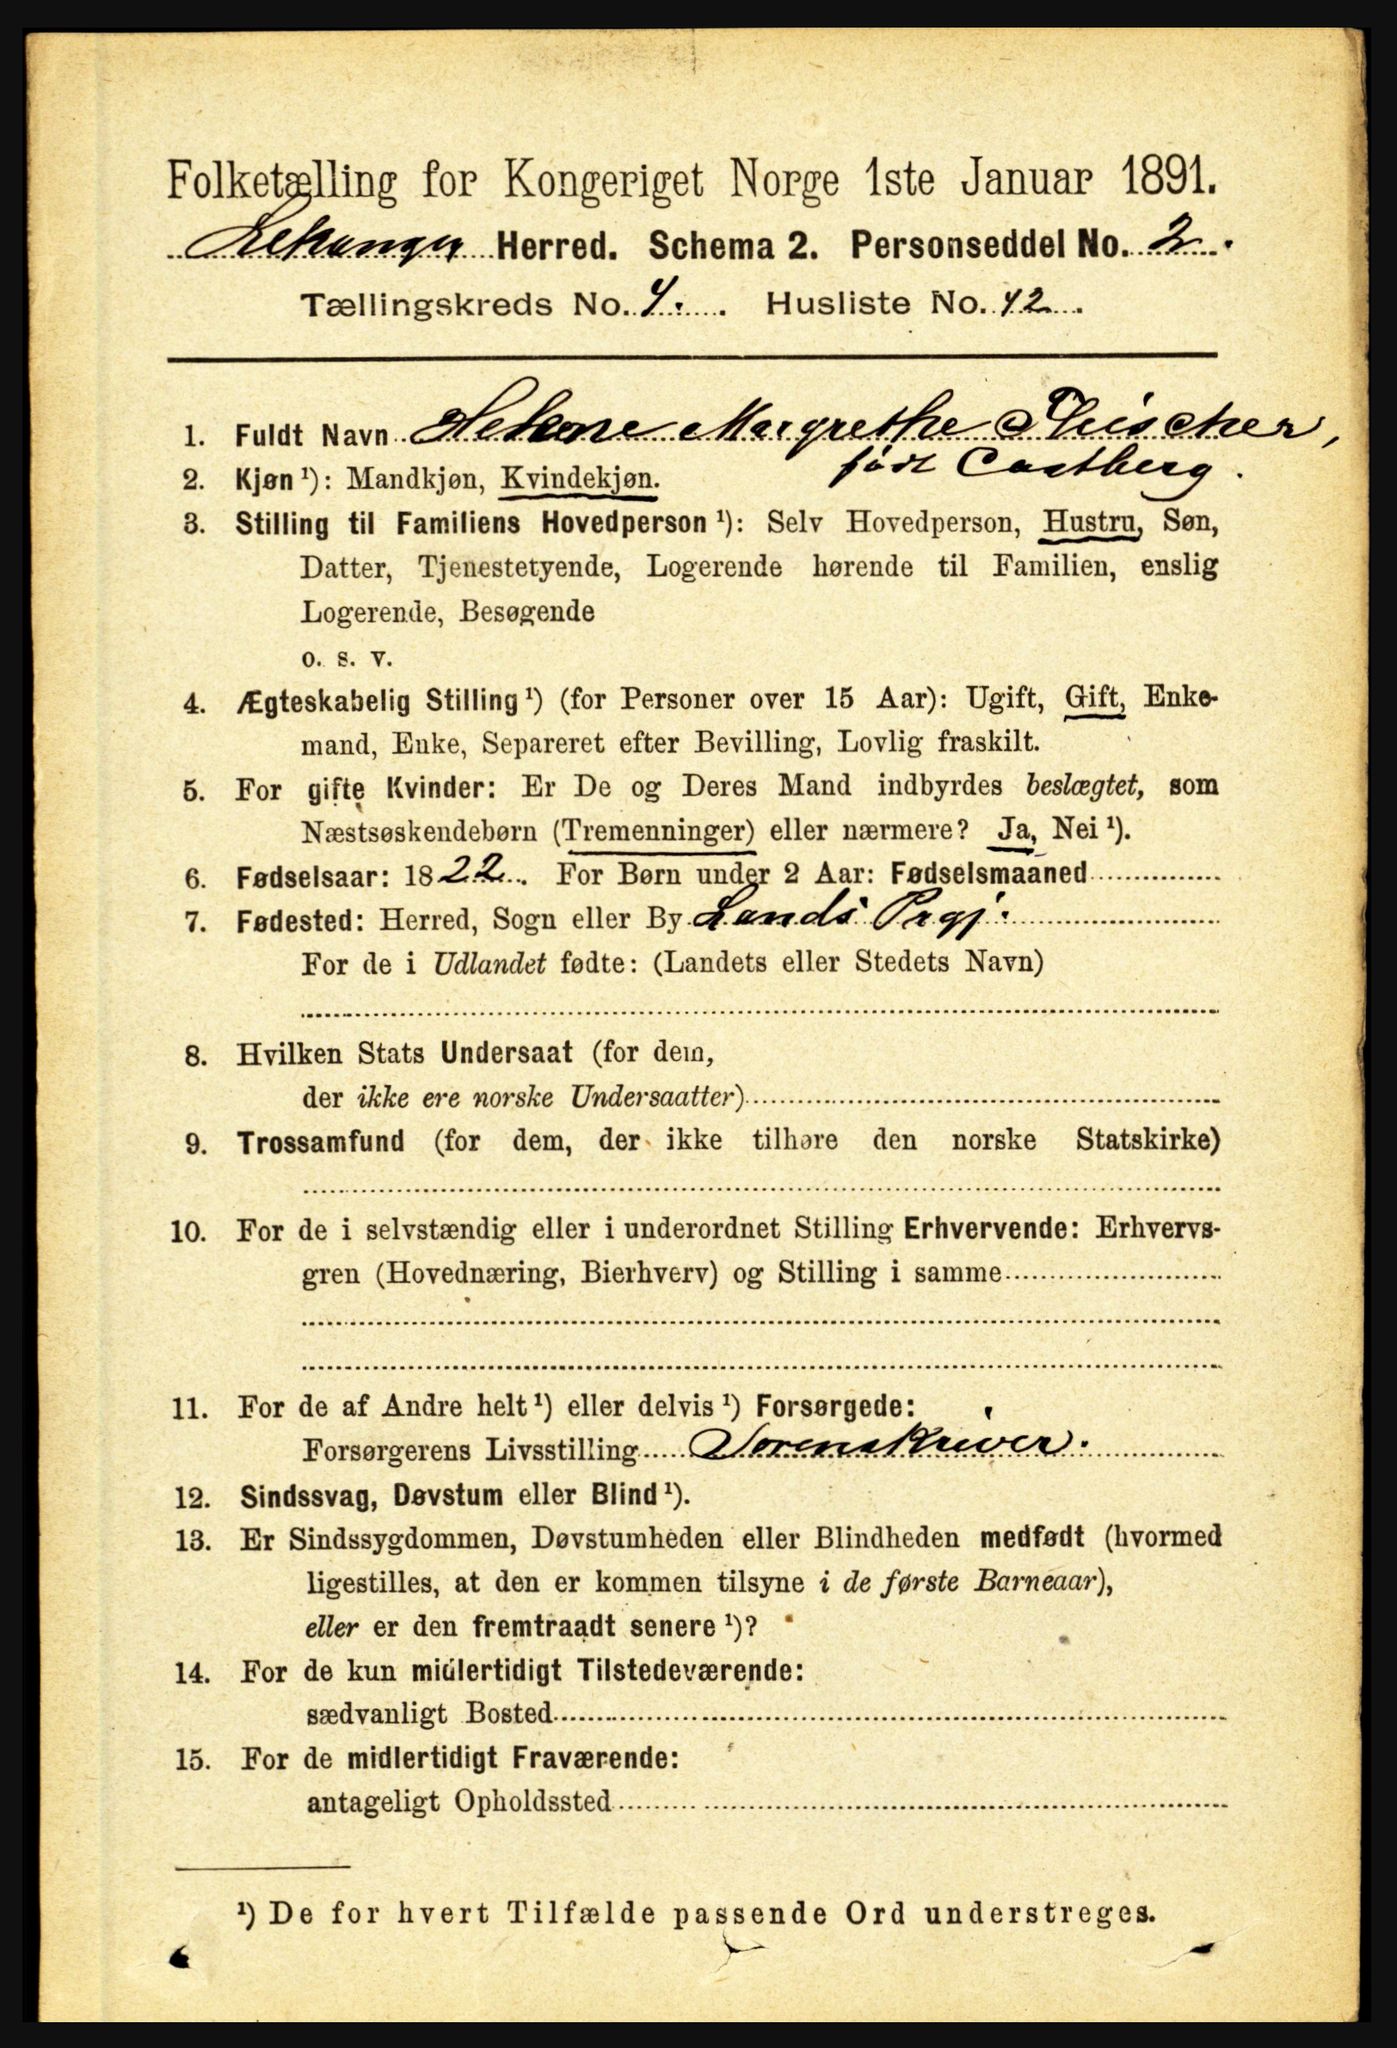 Folketælling for Kongeriget Norge 1ste Januar 1891.
Lekanger Herred. Schema 2. Personseddel No. 2.
Tællingskreds No. 4. Husliste No. 42.
1. Fuldt Navn Helene Margrethe Fleischer,
født Castberg.
2. Kjøn ¹): Mandkjøn, Kvindekjøn.
3. Stilling til Familiens Hovedperson ¹): Selv Hovedperson, Hustru, Søn,
Datter, Tjenestetyende, Logerende hørende til Familien, enslig
Logerende, Besøgende
o. s. v.
4. Ægteskabelig Stilling ¹) (for Personer over 15 Aar): Ugift, Gift, Enke-
mand, Enke, Separeret efter Bevilling, Lovlig fraskilt.
5. For gifte Kvinder: Er De og Deres Mand indbyrdes beslægtet, som
Næstsøskendebørn (Tremenninger) eller nærmere? Ja, Nei ¹).
6. Fødselsaar: 1822. For Børn under 2 Aar: Fødselsmaaned
7. Fødested: Herred, Sogn eller By Lands Prgj.
For de i Udlandet fødte: (Landets eller Stedets Navn)
8. Hvilken Stats Undersaat (for dem,
der ikke ere norske Undersaatter)
9. Trossamfund (for dem, der ikke tilhøre den norske Statskirke)
10. For de i selvstændig eller i underordnet Stilling Erhvervende: Erhvervs-
gren (Hovednæring, Bierhverv) og Stilling i samme
11. For de af Andre helt ¹) eller delvis ¹) Forsørgede:
Forsørgerens Livsstilling Sorenskriver.
12. Sindssvag, Døvstum eller Blind ¹).
13. Er Sindssygdommen, Døvstumheden eller Blindheden medfødt (hvormed
ligestilles, at den er kommen tilsyne i de første Barneaar),
eller er den fremtraadt senere ¹)?
14. For de kun midlertidigt Tilstedeværende:
sædvanligt Bosted
15. For de midlertidigt Fraværende:
antageligt Opholdssted
¹) De for hvert Tilfælde passende Ord understreges.